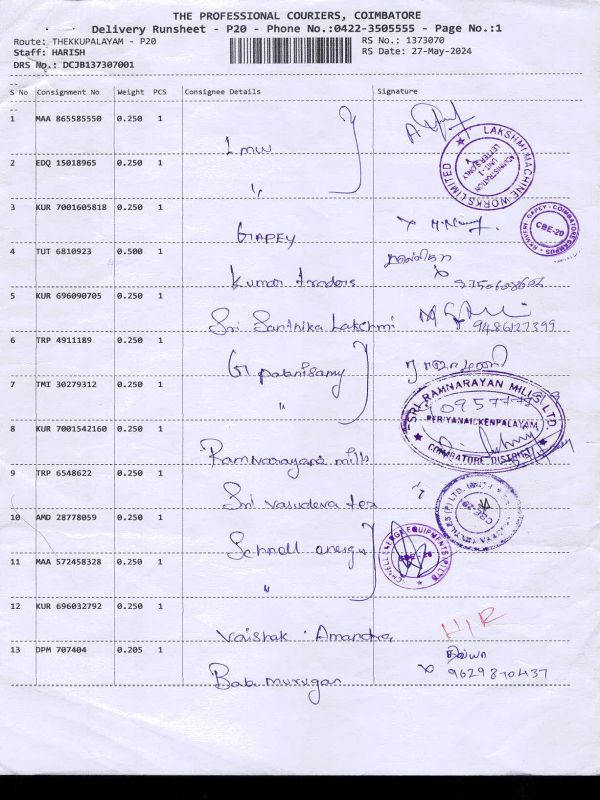 THE PROFESSIONAL COURIERS, COIMBATORE
Delivery Runsheet - P20 - Phone No.:0422-3505555 - Page No.:1
Route: THEKKUPALAYAM - P20
RS No.: 1373070
Staff: HARISH
RS Date: 27-May-2024
DRS No.: DCJB137307001
S No Consignment No Weight PCS Consignee Details Signature
1 MAA 865585550 0.250 1
Lmw
LAKSHMI MACHINE WORKS LIMITED
ADMINISTRATION
UNIT-1
LETTERS ONLY
2 EDQ 15018965 0.250 1
"
3 KUR 7001605818 0.250 1
GAPEY
CBE-20
4 TUT 6810923 0.500 1
Kumar traders
5 KUR 696090705 0.250 1
Sri Santhika Lakshmi
9486127399
6 TRP 4911189 0.250 1
G1 palanisamy
7 TMI 30279312 0.250 1
"
SRI RAMNARAYAN MILLS LTD.
PERIYANAICKENPALAYAM
COIMBATORE DISTRICT
8 KUR 7001542160 0.250 1
Ramnarayana mills
9 TRP 6548622 0.250 1
Sri vasudeva tex
CBE-20
10 AMD 28778059 0.250 1
Schnell energy
SCHNELL ENERGY EQUIPMENTS (P) LTD
11 MAA 572458328 0.250 1
"
12 KUR 696032792 0.250 1
Vaishak Amandra
H/R
13 DPM 707404 0.205 1
Baba murugan
திவ்யா
9629870437